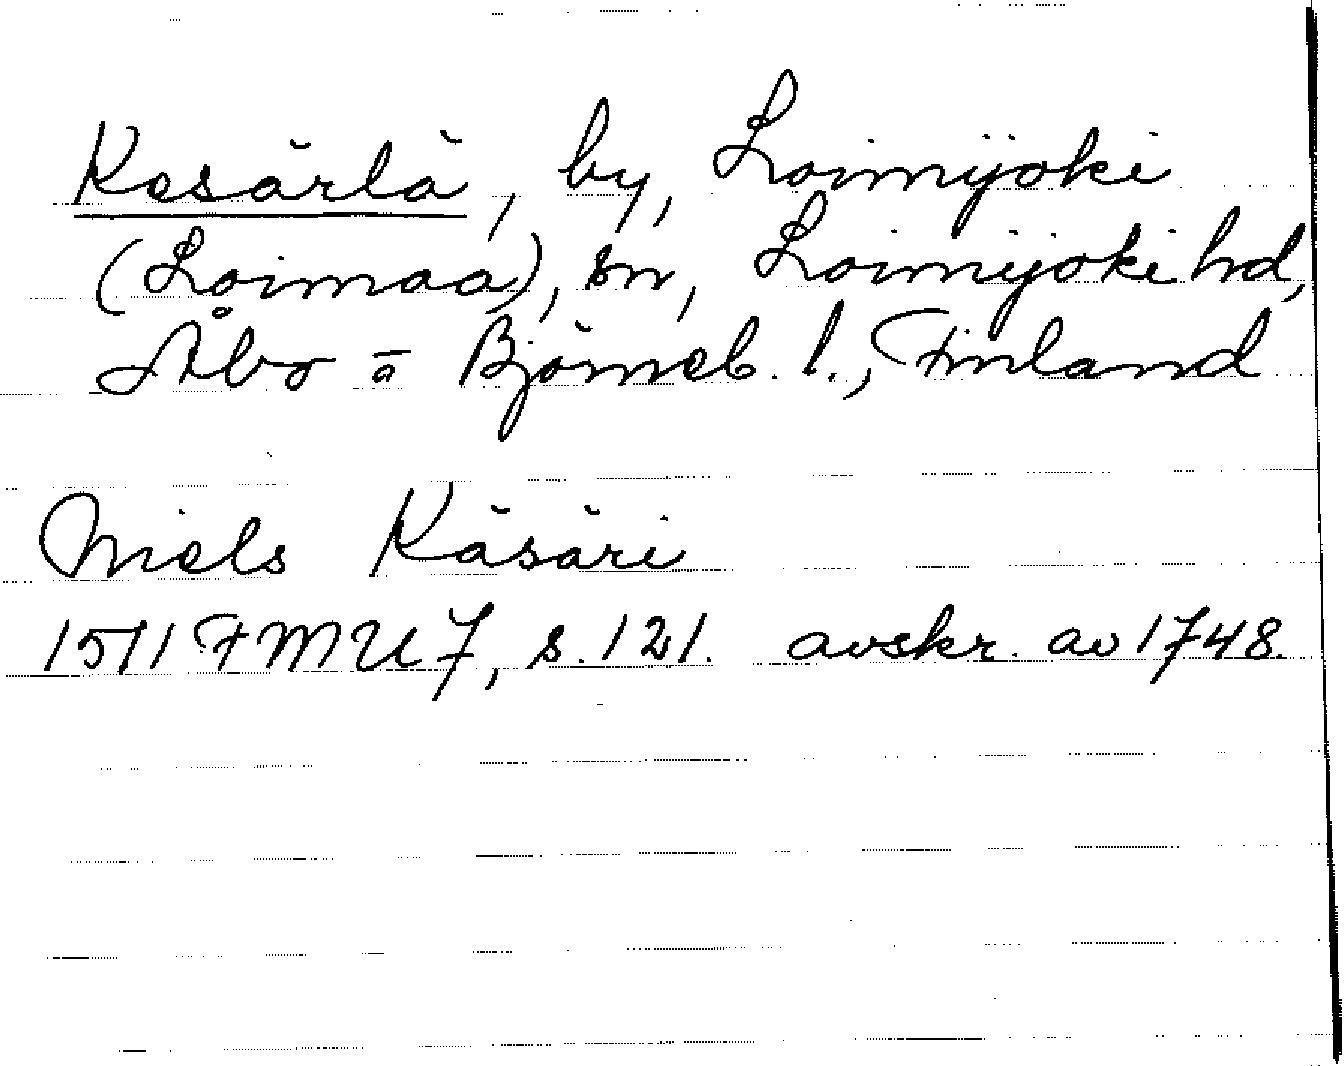 Kesärlä, by, Loimijoki
(Loimaa), sn, Loimijoki hd,
Åbo o Björneb. l., Finland
Niels Käsäri
1511 FMU 7, s. 121. avskr. av 1748.